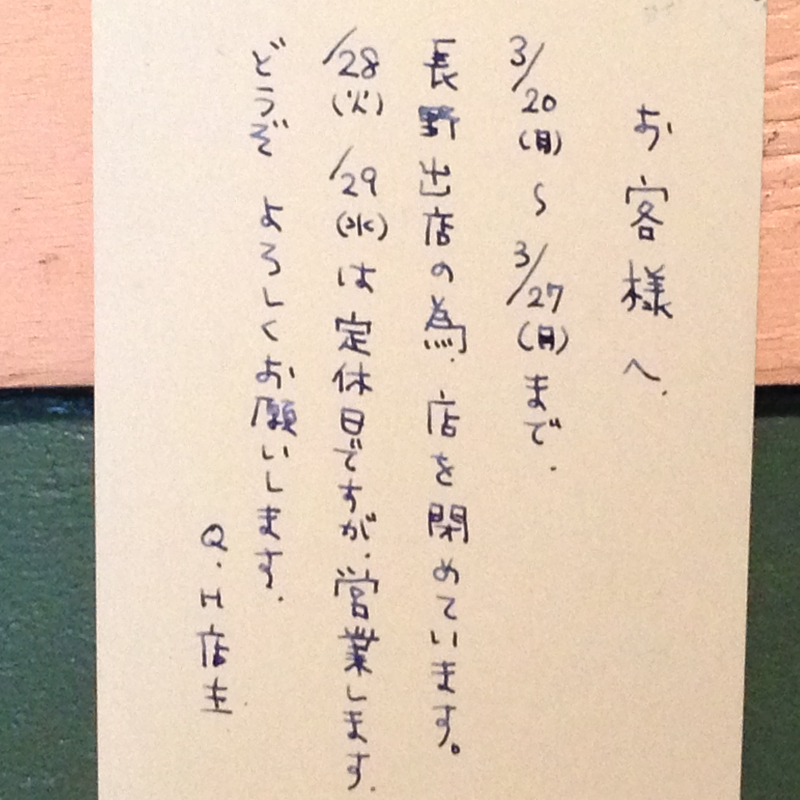 お客様へ.
3/20(月)〜3/27(月)まで.
長野出店の為.店を閉めています。
/28(火) /29(水)は定休日ですが.営業します.
どうぞ よろしくお願いします.
Q.H店主